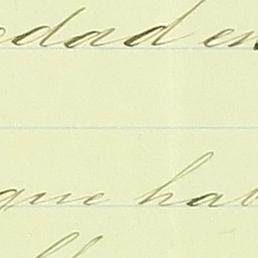 edad en
que hab